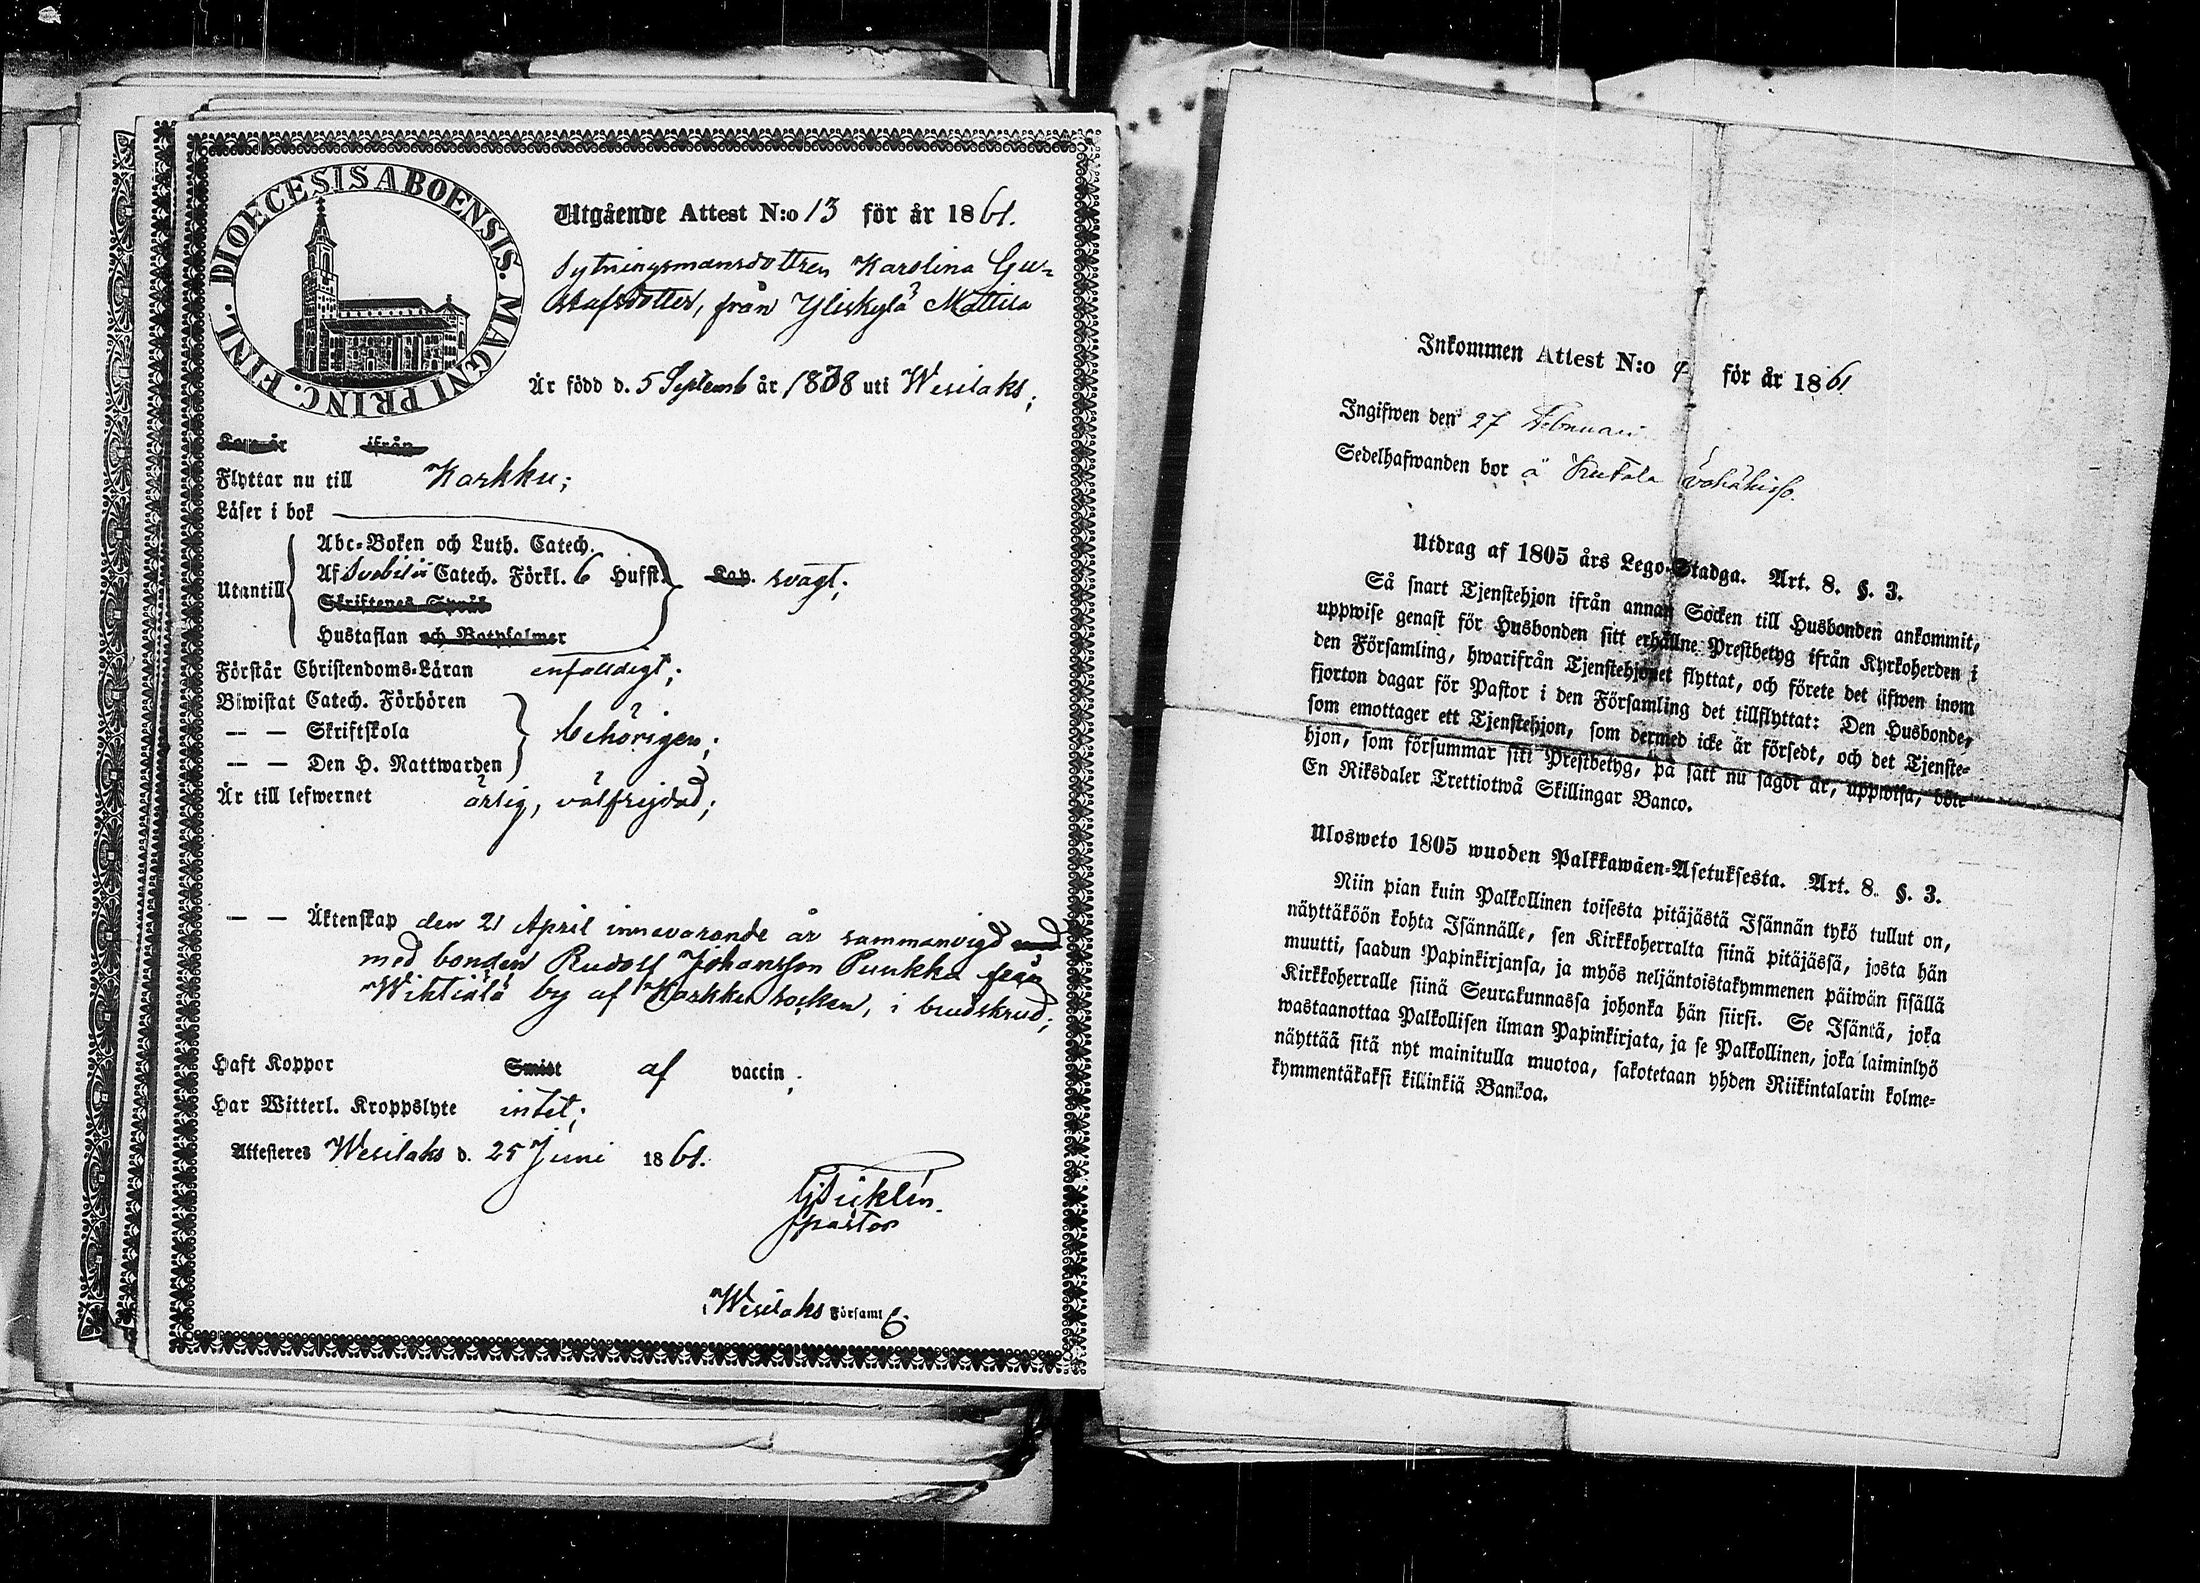 FINL. DIOECESIS ABOENSIS. MAGNI PRINC.
Utgående Attest N:o 13 för år 1861.
Sytningsmansdottren Karolina Gu-
stafsdotter, från Yliskylä Mattila
Är född d. 5 Septemb år 1838 uti Wesilaks;
Kom år ifrån
Flyttar nu till Karkku;
Läser i bok
Abc-Boken och Luth. Catech.
Utantill Af Svebilii Catech. Förkl. 6 Hufst. Kap. svagt;
Skriftenes Språk
Hustaflan och Botpsalmer
Förstår Christendoms-Läran enfaldigt;
Biwistat Catech. Förhören
— — Skriftskola behörigen;
— — Den H. Nattwarden
Är till lefwernet ärlig, välfrejdad;
— — Äktenskap den 21 April innevarande år sammanvigd med
med bonden Rudolf Johansson Punkka från
Wihtiälä by af Karkku socken, i brudskrud;
Haft Koppor Smitt af vaccin;
Har Witterl. Kroppslyte intet;
Attesteres Wesilaks d. 25 Juni 1861.
pastor
Wesilaks Församl
Inkommen Attest N:o 4 för år 1861.
Ingifwen den 27 Februari
Sedelhafwanden bor å
Utdrag af 1805 års Lego-Stadga. Art. 8. §. 3.
Så snart Tjenstehjon ifrån annan Socken till Husbonden ankommit,
uppwise genast för Husbonden sitt erhållne Prestbetyg ifrån Kyrkoherden i
den Församling, hwarifrån Tjenstehjonet flyttat, och förete det äfwen inom
fjorton dagar för Pastor i den Församling det tillflyttat: Den Husbonde,
som emottager ett Tjenstehjon, som dermed icke är försedt, och det Tjenste-
hjon, som försummar sitt Prestbetyg, på sätt nu sagdt är, uppwisa, böte
En Riksdaler Trettiotwå Skillingar Banco.
Ulosweto 1805 wuoden Palkkawäen-Asetuksesta. Art. 8. §. 3.
Niin pian kuin Palkollinen toisesta pitäjästä Isännän tykö tullut on,
näyttäköön kohta Isännälle, sen Kirkkoherralta siinä pitäjässä, josta hän
muutti, saadun Papinkirjansa, ja myös neljäntoistakymmenen päiwän sisällä
Kirkkoherralle siinä Seurakunnassa johonka hän siirsi. Se Isäntä, joka
wastaanottaa Palkollisen ilman Papinkirjata, ja se Palkollinen, joka laiminlyö
näyttää sitä nyt mainitulla muotoa, sakotetaan yhden Riikintalarin kolme-
kymmentäkaksi killinkiä Bankoa.